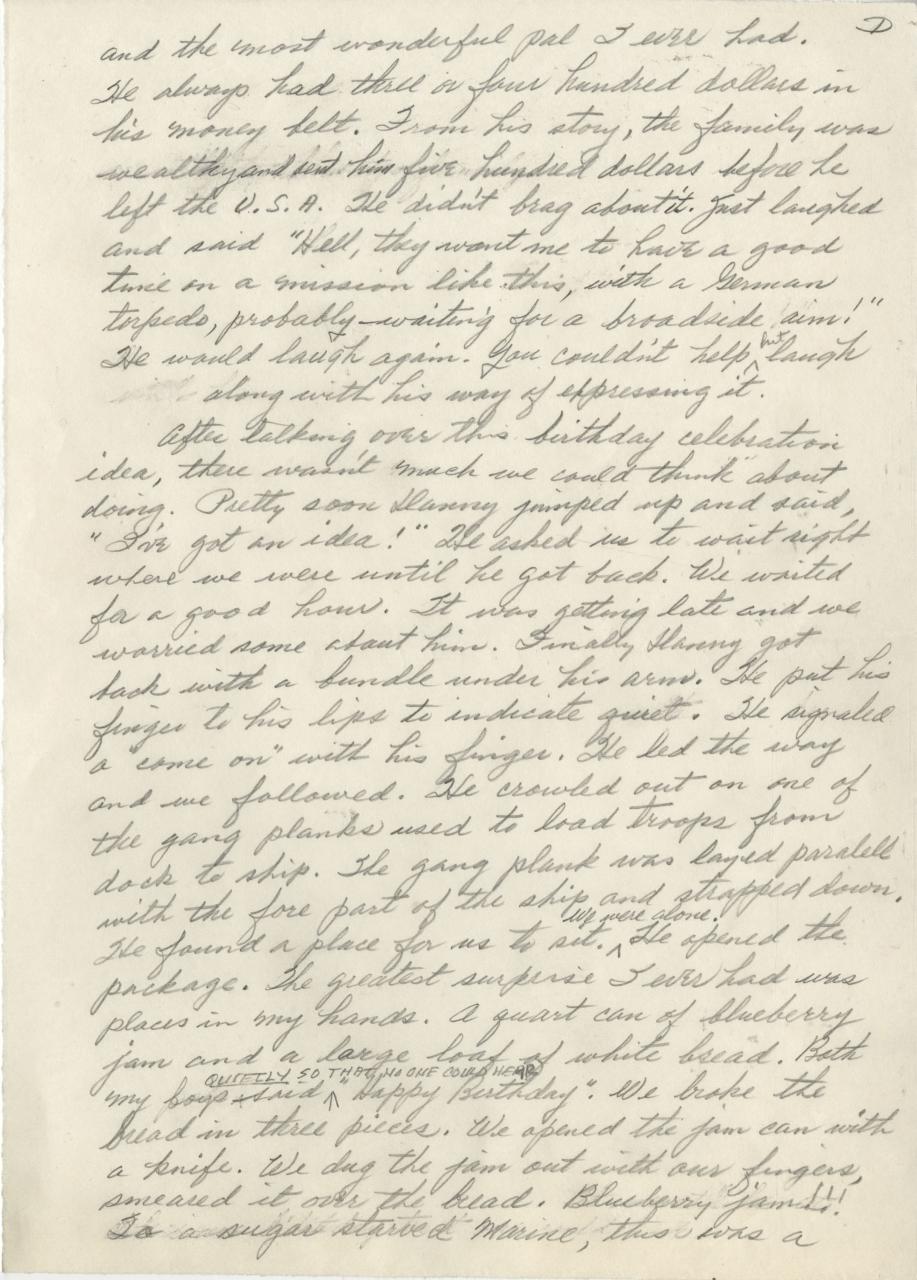 D
and the most wonderful pal I ever had.
He always had three or four hundred dollars in
his money belt. From his story, the family was
wealthy and sent him five hundred dollars before he
left the U.S.A. He didn't brag about it. Just laughed
and said "Hell, they want me to have a good
time on a mission like this, with a German
torpedo, probably—waiting for a broadside aim!"
He would laugh again. You couldn't help ^but laugh
along with his way of expressing it.
After talking over this birthday celebration
idea, there wasn't much we could "think" about
doing. Pretty soon Danny jumped up and said,
"I've got an idea!" He asked us to wait right
where we were until he got back. We waited
for a good hour. It was getting late and we
worried some about him. Finally Danny got
back with a bundle under his arm. He put his
finger to his lips to indicate quiet. He signaled
a "come on" with his finger. He led the way
and we followed. He crowled out on one of
the gang planks used to load troops from
dock to ship. The gang plank was layed paralell
with the fore part of the ship and strapped down.
We were alone.
He found a place for us to sit. ^ He opened the
package. The greatest surprise I ever had was
places in my hands. A quart can of blueberry
jam and a large loaf of white bread. Both
QUIETLY SO THAT NO ONE COULD HEAR
my pays said ^ "Happy Birthday". We broke the
bread in three pieces. We opened the jam can with
a knife. We dug the jam out with our fingers,
smeared it over the bread. Blueberry jam!!!
To a sugar starved Marine, this was a